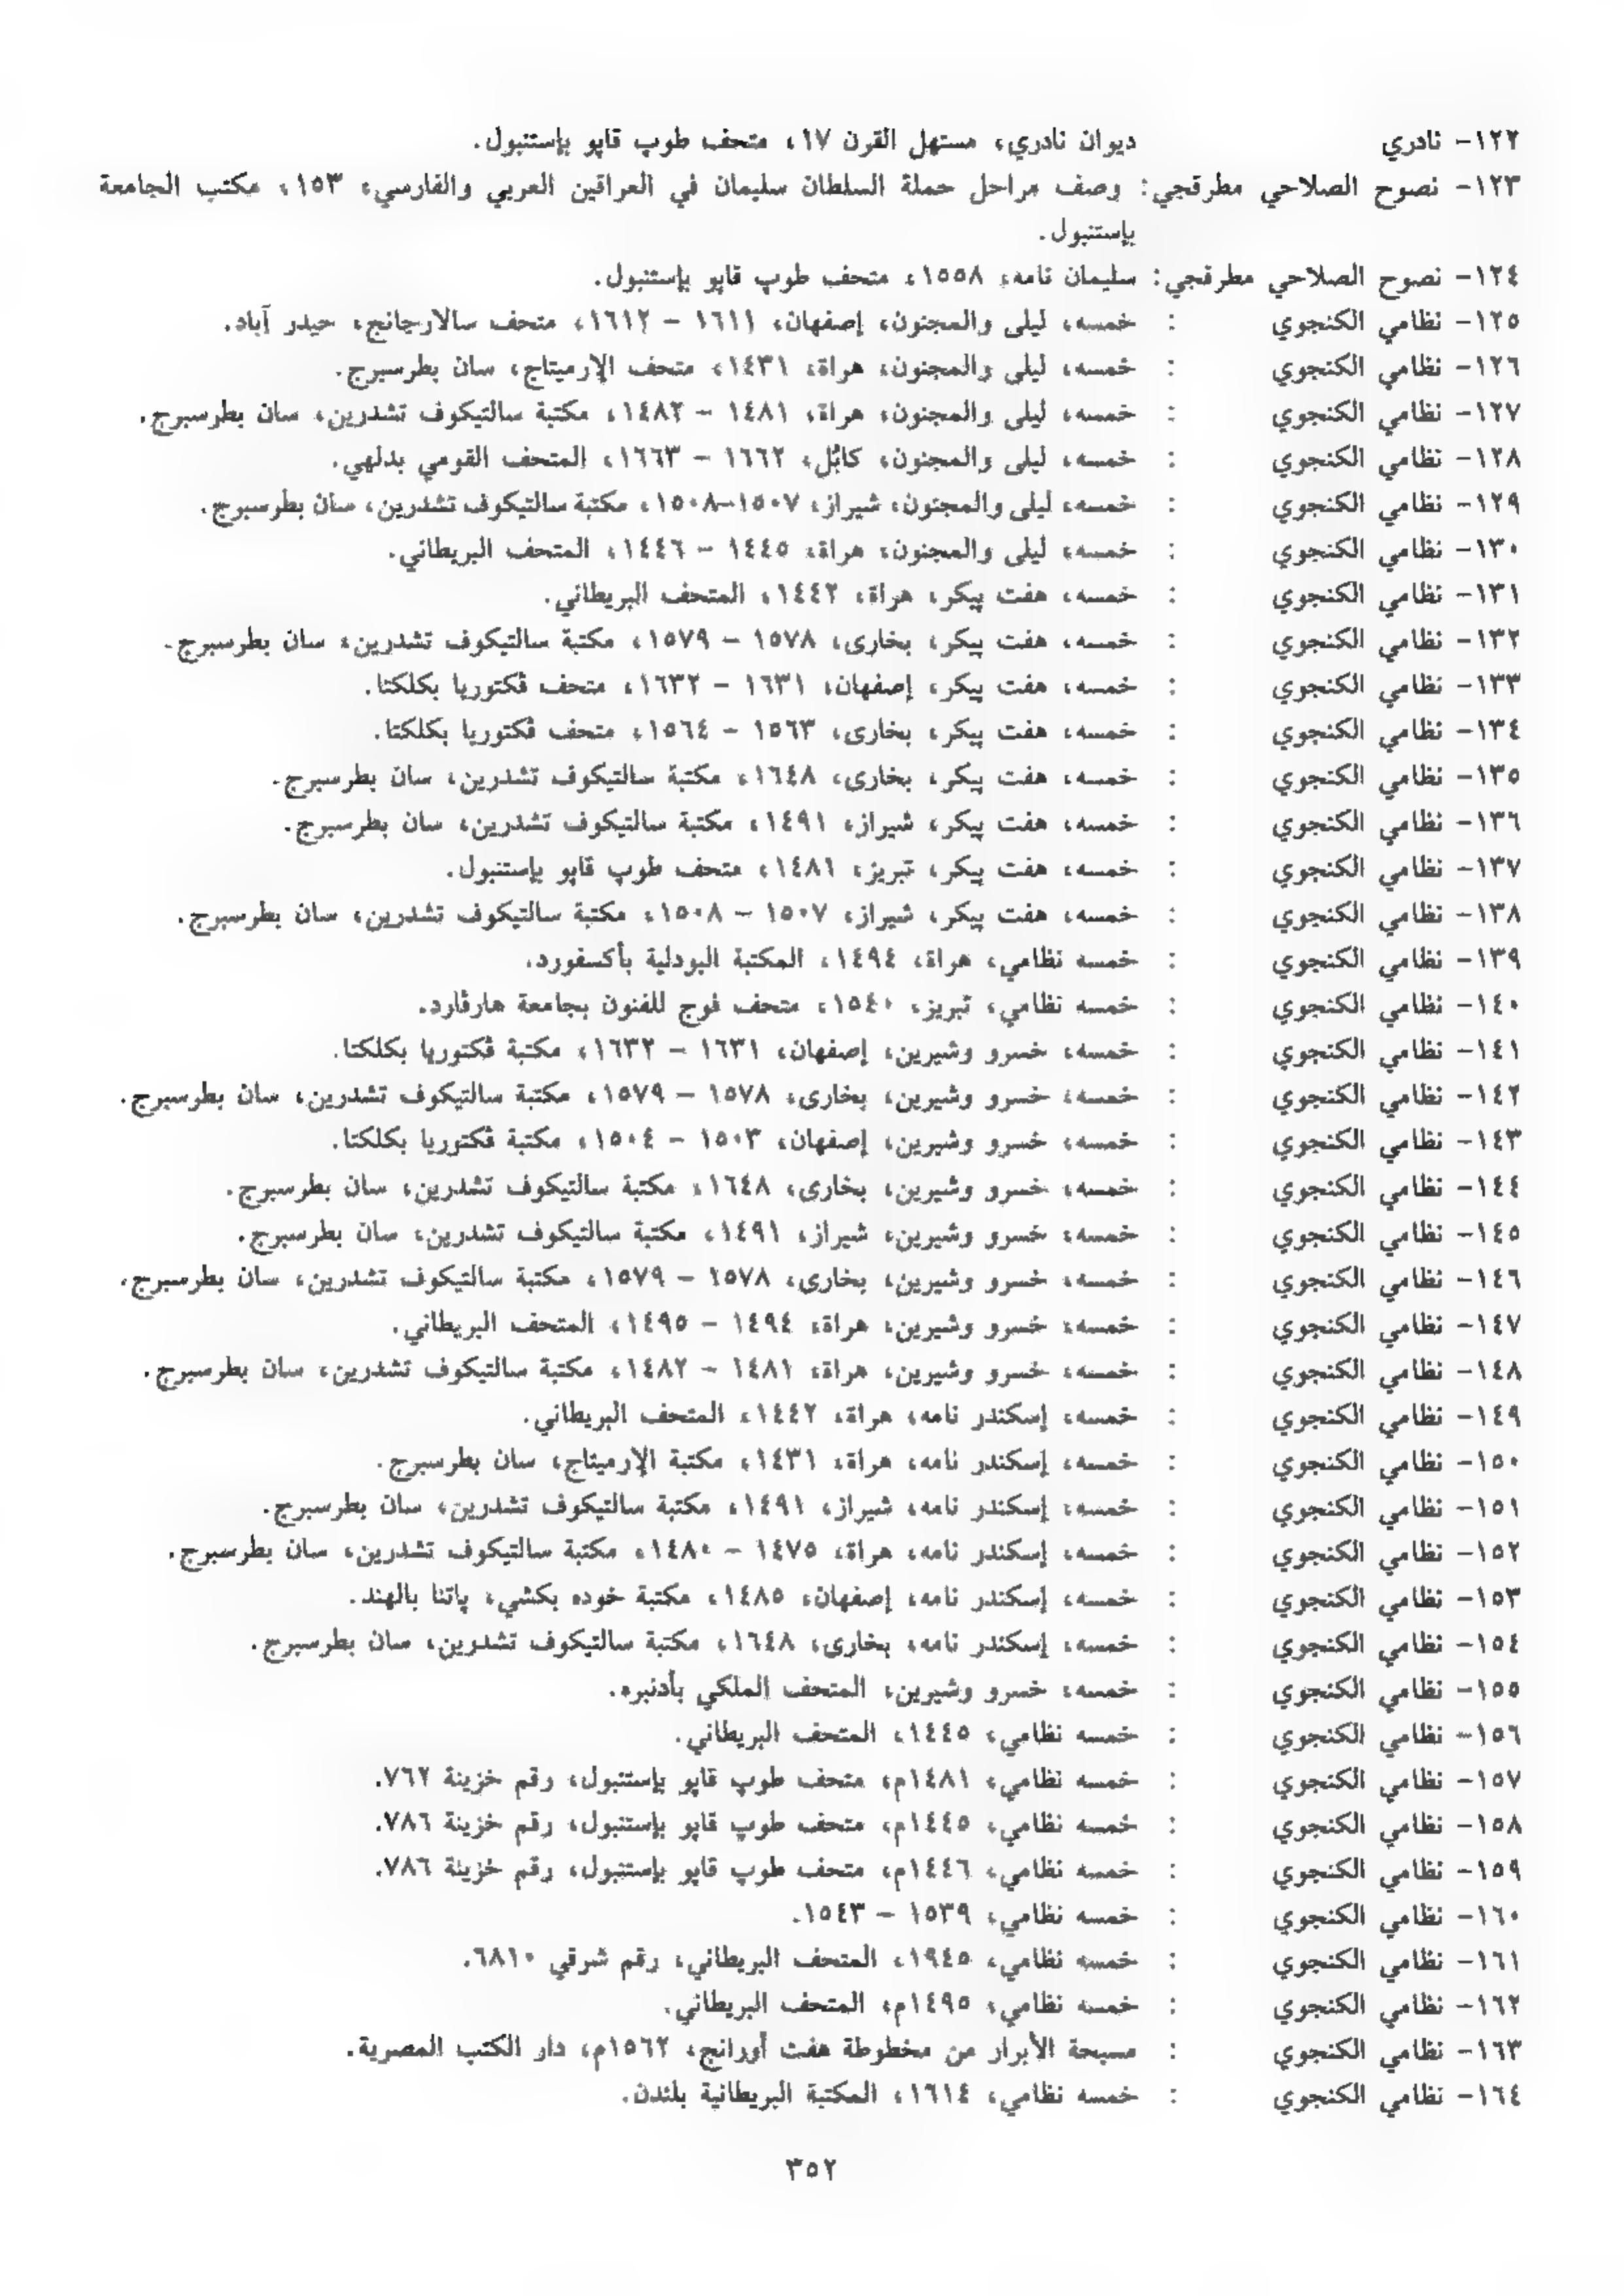 ١٢٢- نادري ديوان نادري، مستهل القرن ١٧، متحف طوپ قاپو بإستنبول.
١٢٣- نصوح الصلاحي مطرقجي: وصف مراحل حملة السلطان سليمان في العراقين العربي والفارسي، ١٥٣، مكتب الجامعة
بإستنبول.
١٢٤- نصوح الصلاحي مطرقجي: سليمان نامه، ١٥٥٨، متحف طوپ قاپو بإستنبول.
١٢٥- نظامي الكنجوي : خمسه، ليلى والمجنون، إصفهان، ١٦١١ - ١٦١٢، متحف سالارجانج، حيدر آباد.
١٢٦- نظامي الكنجوي : خمسه، ليلى والمجنون، هراة، ١٤٣١، متحف الإرميتاج، سان بطرسبرج.
١٢٧- نظامي الكنجوي : خمسه، ليلى والمجنون، هراة، ١٤٨١ - ١٤٨٢، مكتبة سالتيكوف تشدرين، سان بطرسبرج.
١٢٨- نظامي الكنجوي : خمسه، ليلى والمجنون، كابُل، ١٦٦٢ - ١٦٦٣، المتحف القومي بدلهي.
١٢٩- نظامي الكنجوي : خمسه، ليلى والمجنون، شيراز، ١٥٠٧-١٥٠٨، مكتبة سالتيكوف تشدرين، سان بطرسبرج.
١٣٠- نظامي الكنجوي : خمسه، ليلى والمجنون، هراة، ١٤٤٥ - ١٤٤٦، المتحف البريطاني.
١٣١- نظامي الكنجوي : خمسه، هفت پيكر، هراة، ١٤٤٢، المتحف البريطاني.
١٣٢- نظامي الكنجوي : خمسه، هفت پيكر، بخارى، ١٥٧٨ - ١٥٧٩، مكتبة سالتيكوف تشدرين، سان بطرسبرج.
١٣٣- نظامي الكنجوي : خمسه، هفت پيكر، إصفهان، ١٦٣١ - ١٦٣٢، متحف ڤكتوريا بكلكتا.
١٣٤- نظامي الكنجوي : خمسه، هفت پيكر، بخارى، ١٥٦٣ - ١٥٦٤، متحف ڤكتوريا بكلكتا.
١٣٥- نظامي الكنجوي : خمسه، هفت پيكر، بخارى، ١٦٤٨، مكتبة سالتيكوف تشدرين، سان بطرسبرج.
١٣٦- نظامي الكنجوي : خمسه، هفت پيكر، شيراز، ١٤٩١، مكتبة سالتيكوف تشدرين، سان بطرسبرج.
١٣٧- نظامي الكنجوي : خمسه، هفت پيكر، تبريز، ١٤٨١، متحف طوپ قاپو بإستنبول.
١٣٨- نظامي الكنجوي : خمسه، هفت پيكر، شيراز، ١٥٠٧ - ١٥٠٨، مكتبة سالتيكوف تشدرين، سان بطرسبرج.
١٣٩- نظامي الكنجوي : خمسه نظامي، هراة، ١٤٩٤، المكتبة البودلية بأكسفورد.
١٤٠- نظامي الكنجوي : خمسه نظامي، تبريز، ١٥٤٠، متحف فوج للفنون بجامعة هارڤارد.
١٤١- نظامي الكنجوي : خمسه، خسرو وشيرين، إصفهان، ١٦٣١ - ١٦٣٢، مكتبة ڤكتوريا بكلكتا.
١٤٢- نظامي الكنجوي : خمسه، خسرو وشيرين، بخارى، ١٥٧٨ - ١٥٧٩، مكتبة سالتيكوف تشدرين، سان بطرسبرج.
١٤٣- نظامي الكنجوي : خمسه، خسرو وشيرين، إصفهان، ١٥٠٣ - ١٥٠٤، مكتبة ڤكتوريا بكلكتا.
١٤٤- نظامي الكنجوي : خمسه، خسرو وشيرين، بخارى، ١٦٤٨، مكتبة سالتيكوف تشدرين، سان بطرسبرج.
١٤٥- نظامي الكنجوي : خمسه، خسرو وشيرين، شيراز، ١٤٩١، مكتبة سالتيكوف تشدرين، سان بطرسبرج.
١٤٦- نظامي الكنجوي : خمسه، خسرو وشيرين، بخارى، ١٥٧٨ - ١٥٧٩، مكتبة سالتيكوف تشدرين، سان بطرسبرج.
١٤٧- نظامي الكنجوي : خمسه، خسرو وشيرين، هراة، ١٤٩٤ - ١٤٩٥، المتحف البريطاني.
١٤٨- نظامي الكنجوي : خمسه، خسرو وشيرين، هراة، ١٤٨١ - ١٤٨٢، مكتبة سالتيكوف تشدرين، سان بطرسبرج.
١٤٩- نظامي الكنجوي : خمسه، إسكندر نامه، هراة، ١٤٤٢، المتحف البريطاني.
١٥٠- نظامي الكنجوي : خمسه، إسكندر نامه، هراة، ١٤٣١، مكتبة الإرميتاج، سان بطرسبرج.
١٥١- نظامي الكنجوي : خمسه، إسكندر نامه، شيراز، ١٤٩١، مكتبة سالتيكوف تشدرين، سان بطرسبرج.
١٥٢- نظامي الكنجوي : خمسه، إسكندر نامه، هراة، ١٤٧٥ - ١٤٨٠، مكتبة سالتيكوف تشدرين، سان بطرسبرج.
١٥٣- نظامي الكنجوي : خمسه، إسكندر نامه، إصفهان، ١٤٨٥، مكتبة خوده بكشي، پاتنا بالهند.
١٥٤- نظامي الكنجوي : خمسه، إسكندر نامه، بخارى، ١٦٤٨، مكتبة سالتيكوف تشدرين، سان بطرسبرج.
١٥٥- نظامي الكنجوي : خمسه، خسرو وشيرين، المتحف الملكي بأدنبره.
١٥٦- نظامي الكنجوي : خمسه نظامي، ١٤٤٥، المتحف البريطاني.
١٥٧- نظامي الكنجوي : خمسه نظامي، ١٤٨١م، متحف طوپ قاپو بإستنبول، رقم خزينة ٧٦٢.
١٥٨- نظامي الكنجوي : خمسه نظامي، ١٤٤٥م، متحف طوپ قاپو بإستنبول، رقم خزينة ٧٨٦.
١٥٩- نظامي الكنجوي : خمسه نظامي، ١٤٤٦م، متحف طوپ قاپو بإستنبول، رقم خزينة ٧٨٦.
١٦٠- نظامي الكنجوي : خمسه نظامي، ١٥٣٩ - ١٥٤٣.
١٦١- نظامي الكنجوي : خمسه نظامي، ١٩٤٥، المتحف البريطاني، رقم شرقي ٦٨١٠.
١٦٢- نظامي الكنجوي : خمسه نظامي، ١٤٩٥م، المتحف البريطاني.
١٦٣- نظامي الكنجوي : مسبحة الأبرار من مخطوطة هفت أورانج، ١٥٦٢م، دار الكتب المصرية.
١٦٤- نظامي الكنجوي : خمسه نظامي، ١٦١٤، المكتبة البريطانية بلندن.
٣٥٢